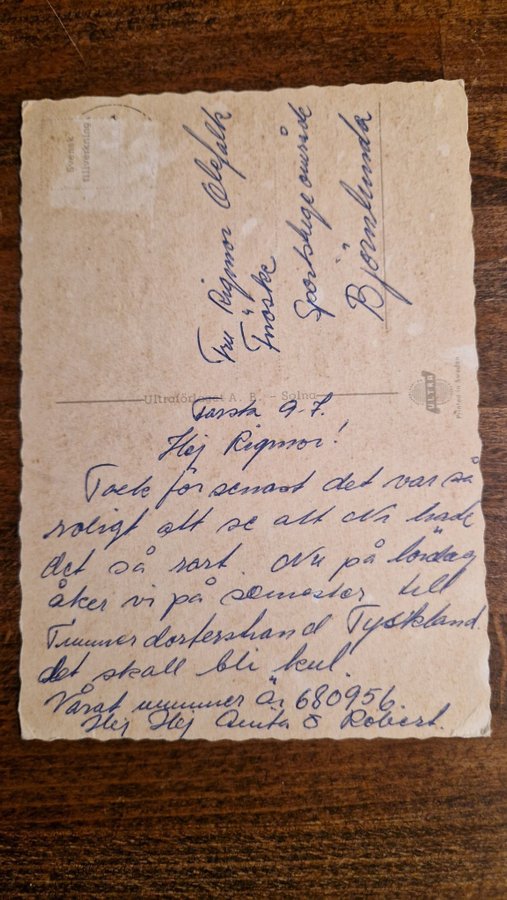 Svensk
tillverkning
Fru Rigmor Olefalk
Fröske
Sportstugeområde
Björnlunda
Ultraförlaget A. B. - Solna
ULTRA
Printed in Sweden
Farsta 9-7.
Hej Rigmor!
Tack för senast det var så
roligt att se att Ni hade
det så rart. Nu på lördag
åker vi på semester till
Timmerdorferstrand Tyskland.
det skall bli kul.
Vårat nummer är 680956.
Hej Hej Anita & Robert.